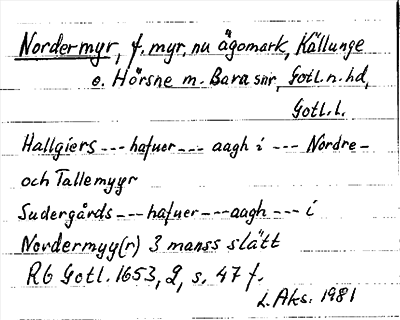 Nordermyr, f. myr, nu ägomark, Källunge
o. Hörsne m. Bara snr, Gotl. n. hd,
Gotl. l.
Hallgiers --- hafuer --- aagh i --- Nordre-
och Tallemyyr
Sudergårds --- hafuer --- aagh --- i
Nordermyy(r) 3 manss slätt
RG Gotl. 1653, 2, s. 47 f.
L. Aks. 1981